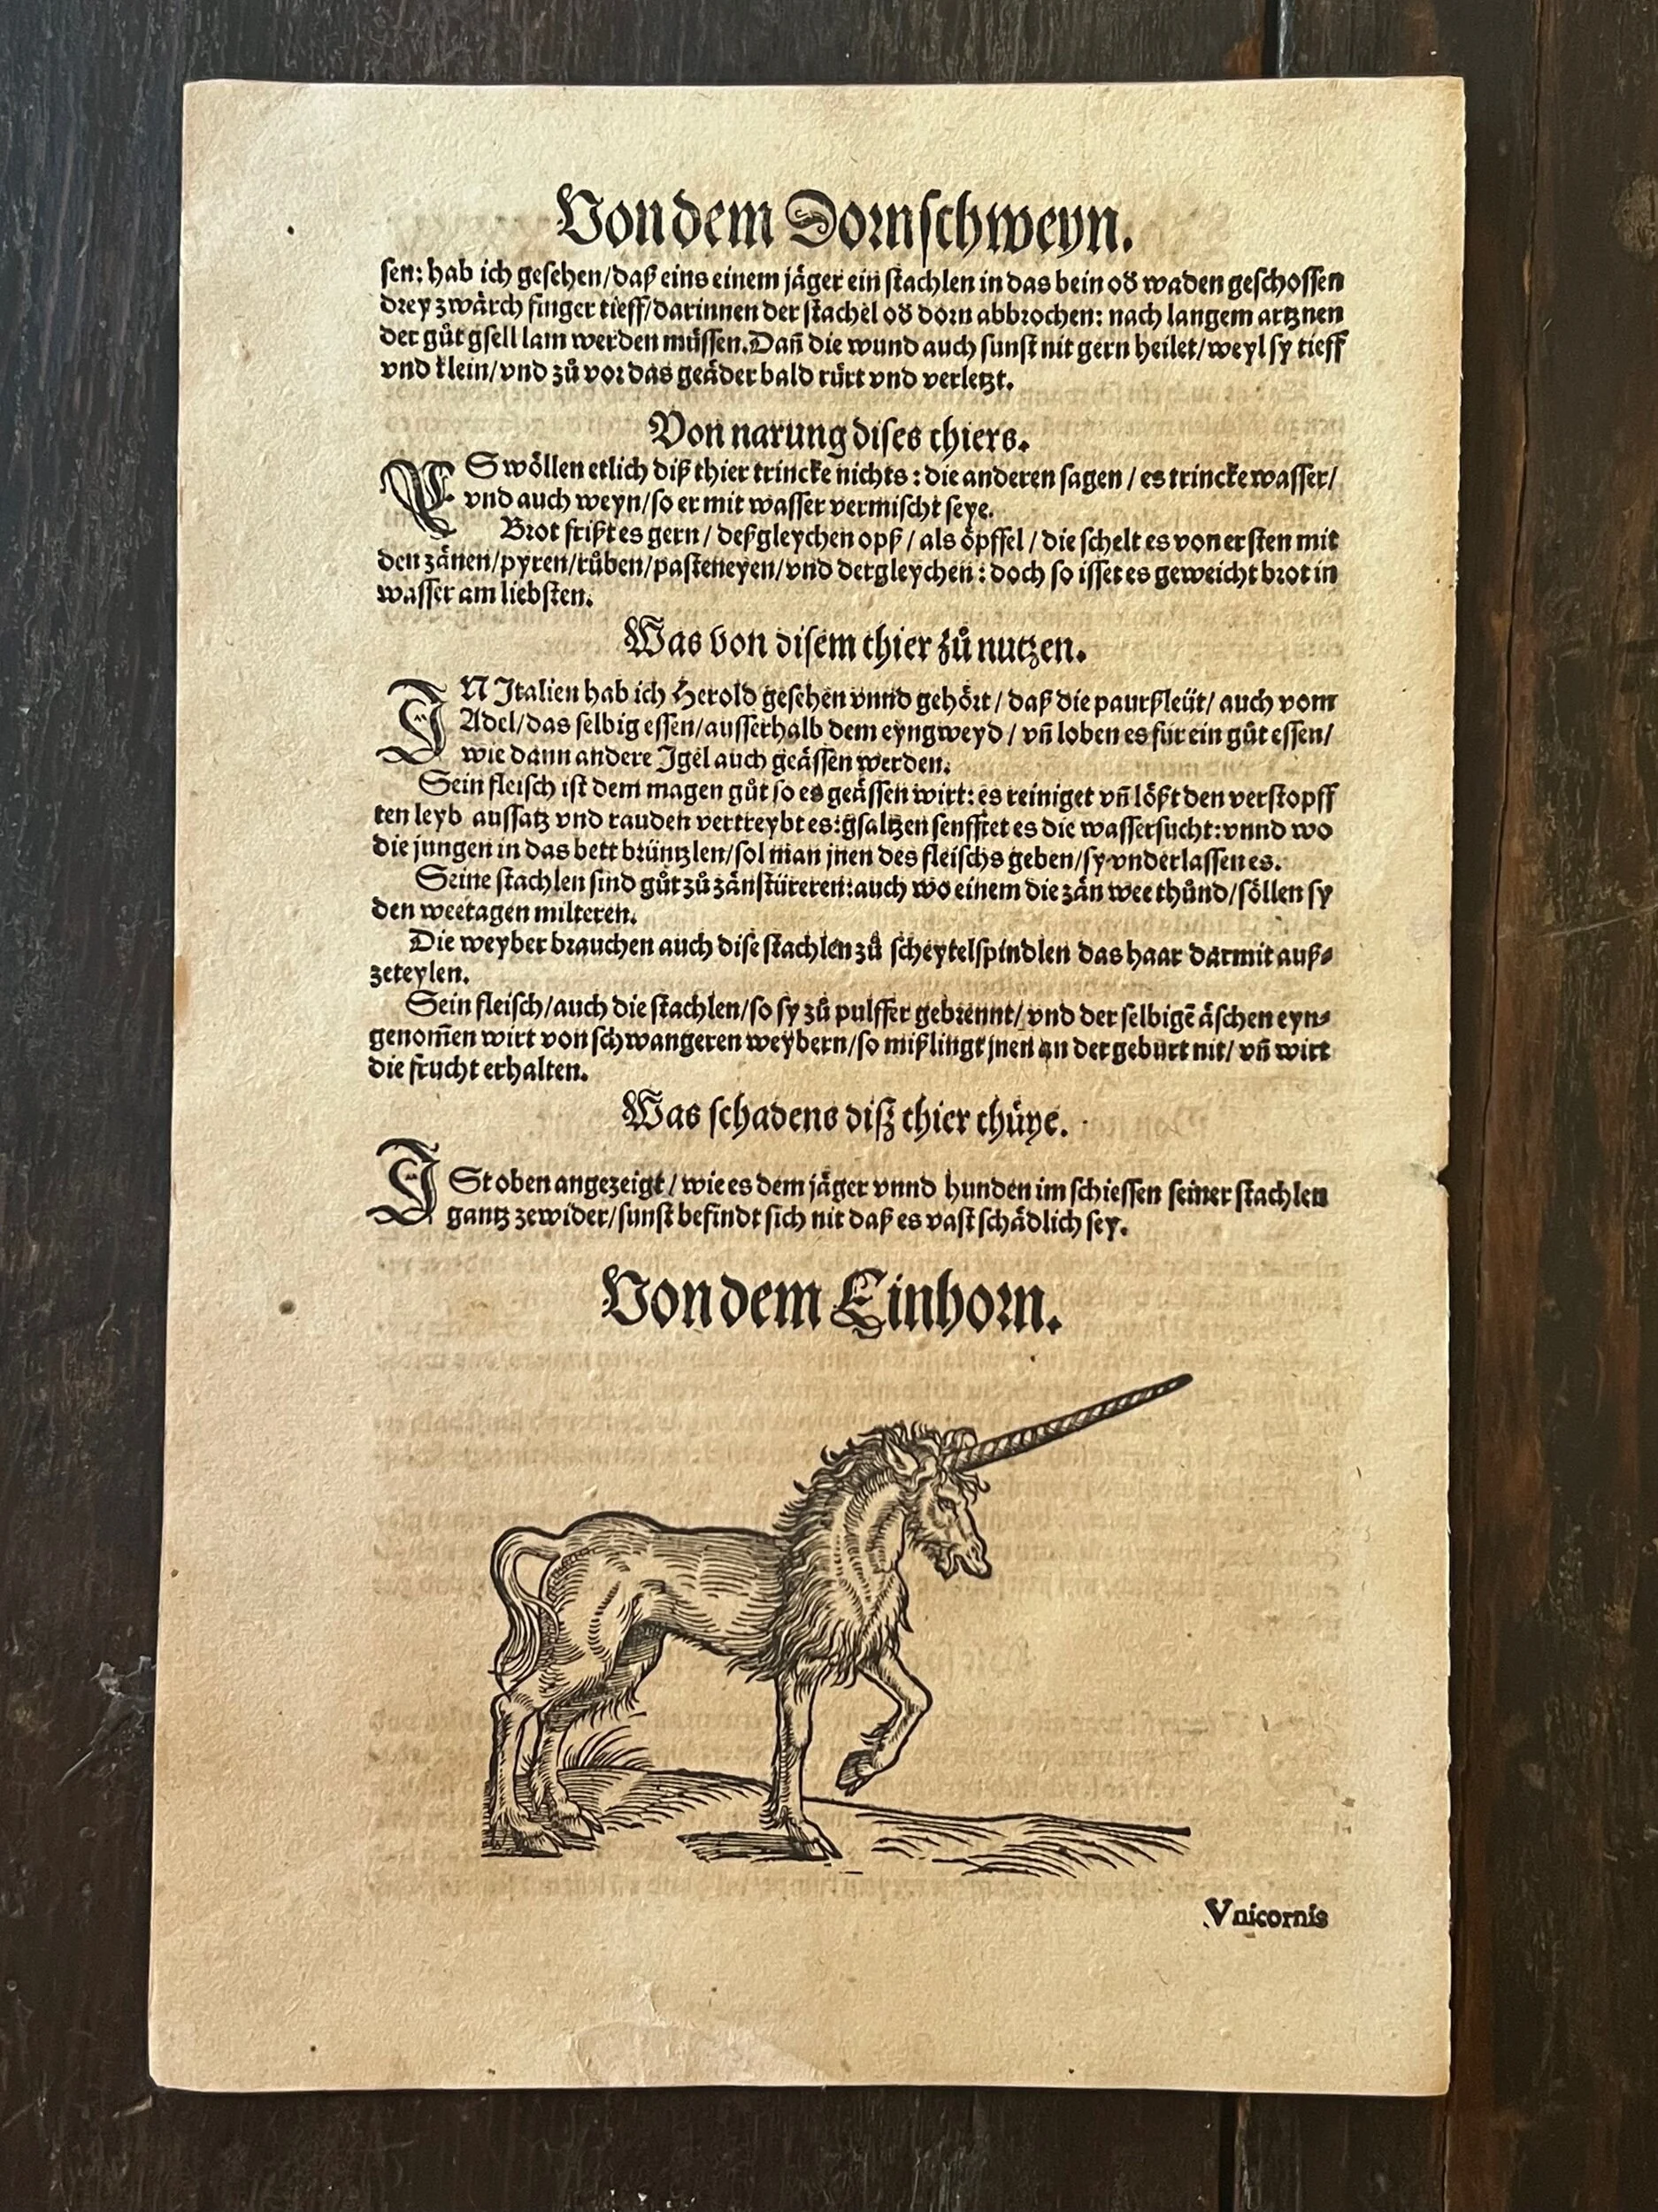 Von dem Dornschweyn.
sen: hab ich gesehen/daß eins einem jäger ein stachlen in das bein oď waden geschossen
drey zwärch finger tieff/darinnen der stachel oď dorn abbrochen: nach langem artznen
der gůt gsell lam werden müssen. Dañ die wund auch sunst nit gern heilet/weyl sy tieff
vnd klein/vnd zů vor das geäder bald rürt vnd verletzt.
Von narung dises thiers.
ES wöllen etlich diß thier trincke nichts: die anderen sagen / es trincke wasser/
vnd auch weyn/so er mit wasser vermischt seye.
Brot frißt es gern / deßgleychen opß / als öpffel / die schelt es von ersten mit
den zänen/pyren/růben/pasteneyen/vnd dergleychen: doch so isset es geweicht brot in
wasser am liebsten.
Was von disem thier zů nutzen.
IN Italien hab ich Herold gesehen vnnd gehört / daß die paurßleüt/ auch vom
Adel/das selbig essen/ausserhalb dem eyngweyd / vñ loben es für ein gůt essen/
wie dann andere Igel auch geässen werden.
Sein fleisch ist dem magen gůt so es geässen wirt: es reiniget vñ lößt den verstopff
ten leyb aussatz vnd rauden vertreybt es: gsaltzen senfftet es die wassersucht: vnnd wo
die jungen in das bett brüntzlen/sol man jnen des fleischs geben/sy vnderlassen es.
Seine stachlen sind gůt zů zänstüreren: auch wo einem die zän wee thůnd/söllen sy
den weetagen milteren.
Die weyber brauchen auch dise stachlen zů scheytelspindlen das haar darmit auß⸗
zeteylen.
Sein fleisch/auch die stachlen/so sy zů pulffer gebrennt/vnd der selbigẽ äschen eyn⸗
genom̃en wirt von schwangeren weybern/so mißlingt jnen an der geburt nit/ vñ wirt
die frucht erhalten.
Was schadens diß thier thüye.
ISt oben angezeigt / wie es dem jäger vnnd hunden im schiessen seiner stachlen
gantz zewider/sunst befindt sich nit daß es vast schädlich sey.
Von dem Einhorn.
Vnicornis